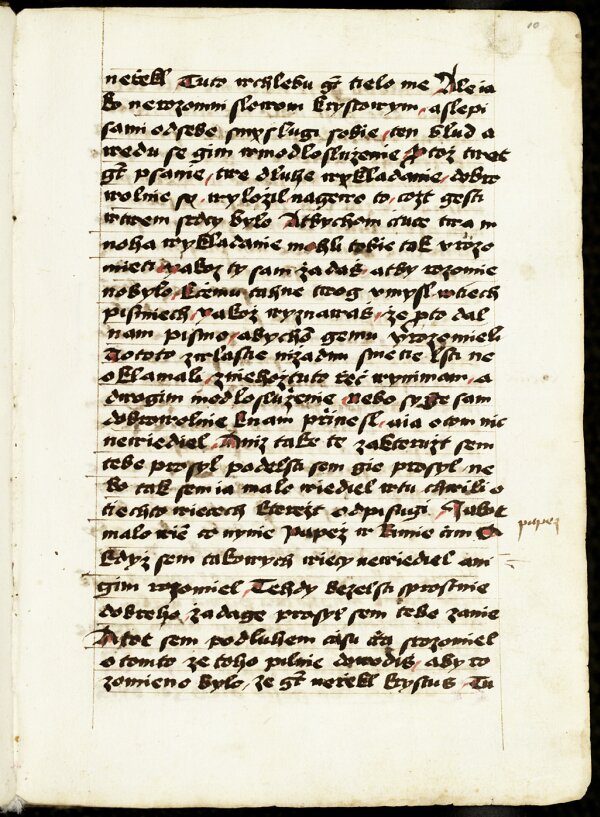 10
neřekl Tuto w chlebu gt tielo me Ale ia
ko nerozomni slowom krystowym, a slepi
sami od sebe smysslugi sobie, ten blud a
wedu se gim w modlosluzenie
gt psanie, twe dluhe wykladanie, dobro
wolnie sy wyložil nagewo to, cozt gesti
w twem srdcy bylo Atbychom
noha wykladanie mohli tobie tak vrozo
mieti yakoz ty sam žadaš atby rozomie
no bylo, k čemu tahne twog vmysl w tiech
pismiech, yakož wyznawaš, že pto dal
nam pismo, abychō gemu vrozomieli
To toto zwlastie nižadnu smetie lsti ne
oklamali, z niehožto tuto řeč wynimam, a
druzim modlosluženie, nebo sy ge sam
dobrowolnie k nam přinesl, a ia o tom nic
newiediel, Aniz take te zakteruzt sem
tebe prosyl podelsti sem gie prosyl, ne
bo tak sem ia malo wiediel w tu chwili o
tiechto wiecech kterezt odpisugi, Jakot
malo wie co nynie Papež w Rimie čini
papež
kdyz sem takowych wiecy newiediel ani
gim rozomiel, Tehdy bezelsti sprostnie
dobreho žadage prosyl sem tebe zanie
Atot sem podluhem času srozomiel
o tomto že toho pilnie dowodiš, aby ro
zomieno bylo, že gt neřekl krystus Tu